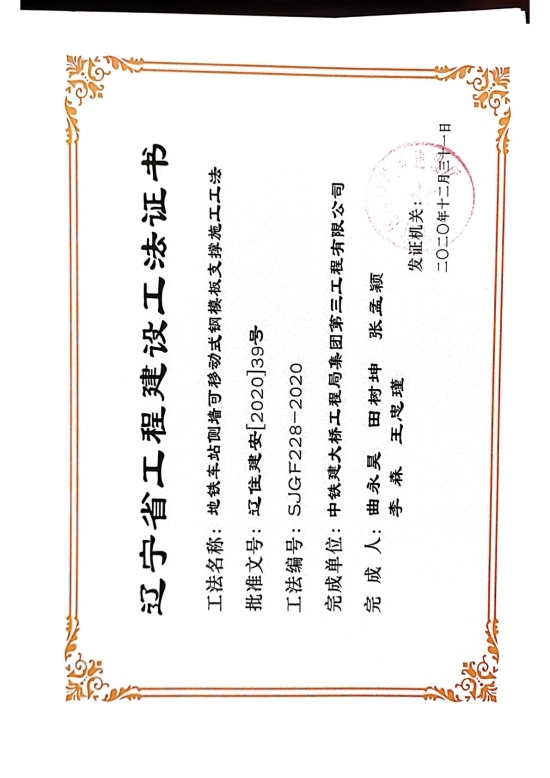 辽宁省工程建设工法证书
工法名称：地铁车站侧墙可移动式钢模板支撑施工工法
批准文号：辽住建安[2020]39号
工法编号：SJGF228-2020
完成单位：中铁建大桥工程局集团第三工程有限公司
完 成 人：曲永昊 田树坤 张孟颖
李森 王思瑾
发证机关：
二〇二〇年十二月三十一日